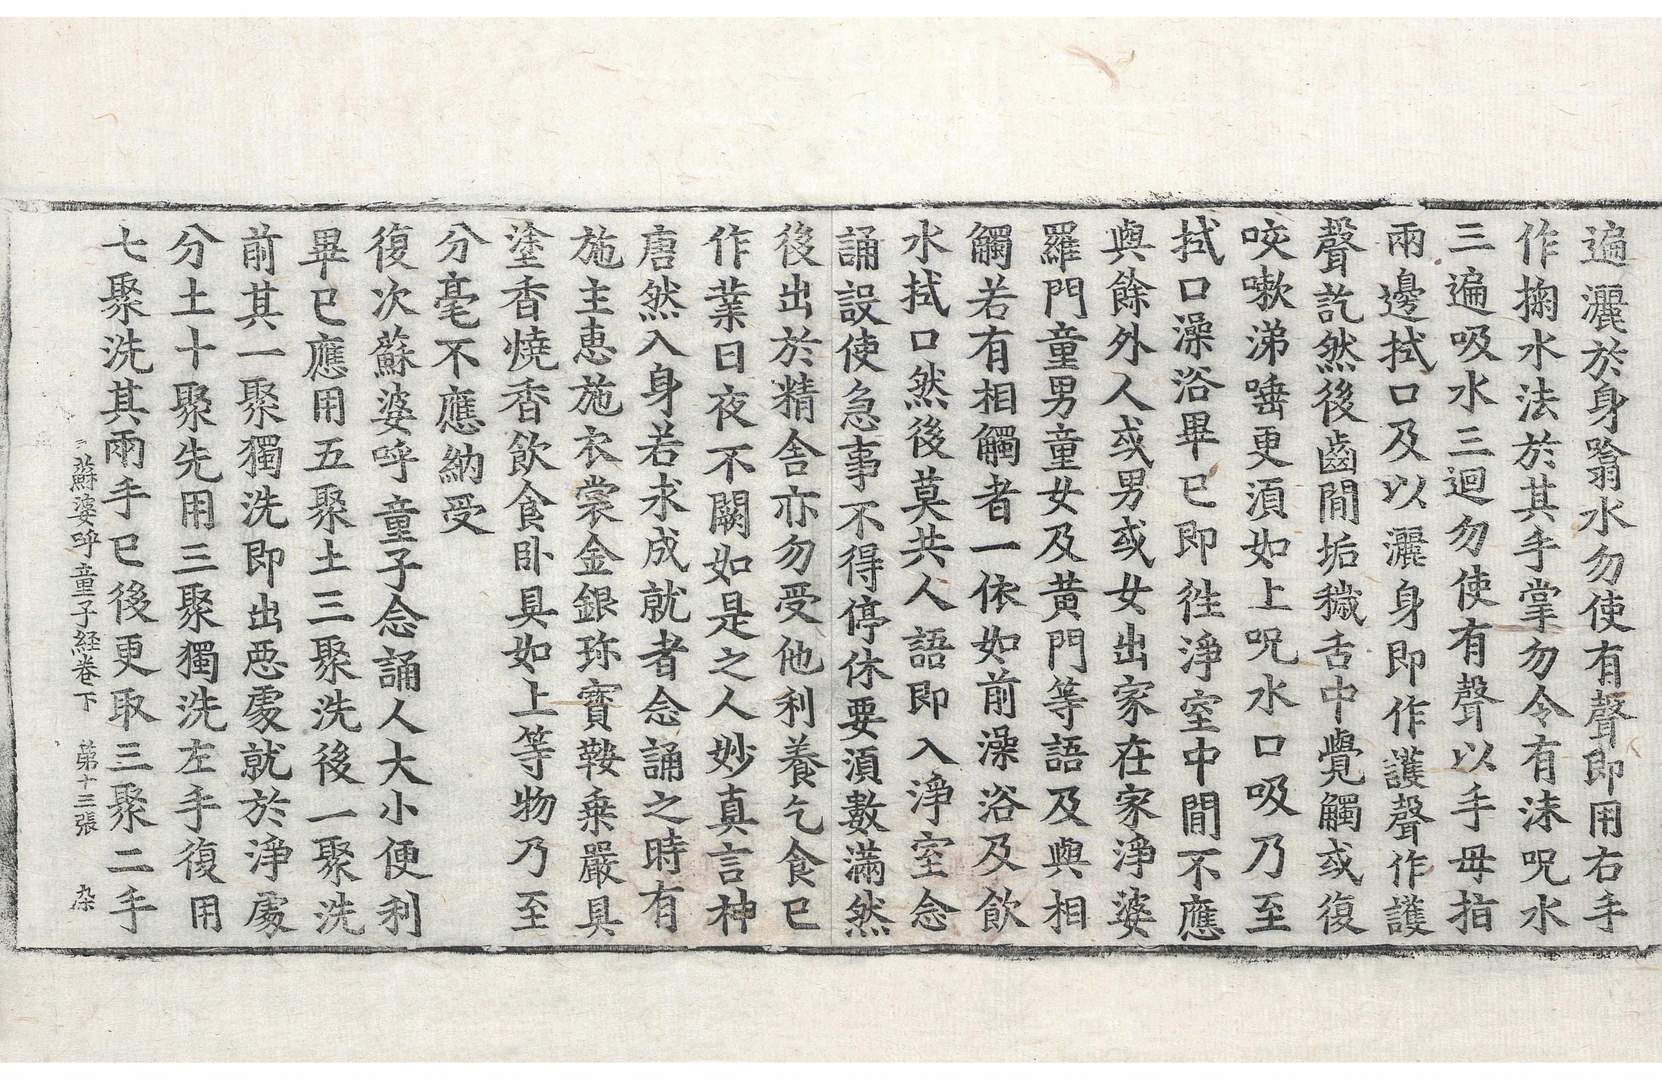 遍灑於身噏水勿使有聲即用右手
作掬水法於其手掌勿令有沫呪水
三遍吸水三迴勿使有聲以手母指
兩邊拭口及以灑身即作護聲作護
聲訖然後齒間垢穢舌中覺觸或復
咳嗽涕唾更須如上呪水口吸乃至
拭口澡浴畢已即徃淨室中間不應
與餘外人或男或女出家在家淨婆
羅門童男童女及黃門等語及與相
觸若有相觸者一依如前澡浴及飲
水拭口然後莫共人語即入淨室念
誦設使急事不得停休要須數滿然
後出於精舍亦勿受他利養乞食已
作業日夜不闕如是之人妙真言神
唐然入身若求成就者念誦之時有
施主惠施衣裳金銀珎寳鞍乗嚴具
塗香燒香飲食卧具如上等物乃至
分毫不應納受
復次蘇婆呼童子念誦人大小便利
畢已應用五聚土三聚洗後一聚洗
前其一聚獨洗即出惡處就於淨處
分土十聚先用三聚獨洗左手復用
七聚洗其兩手已後更取三聚二手
蘇婆呼童子経卷下　第十三張